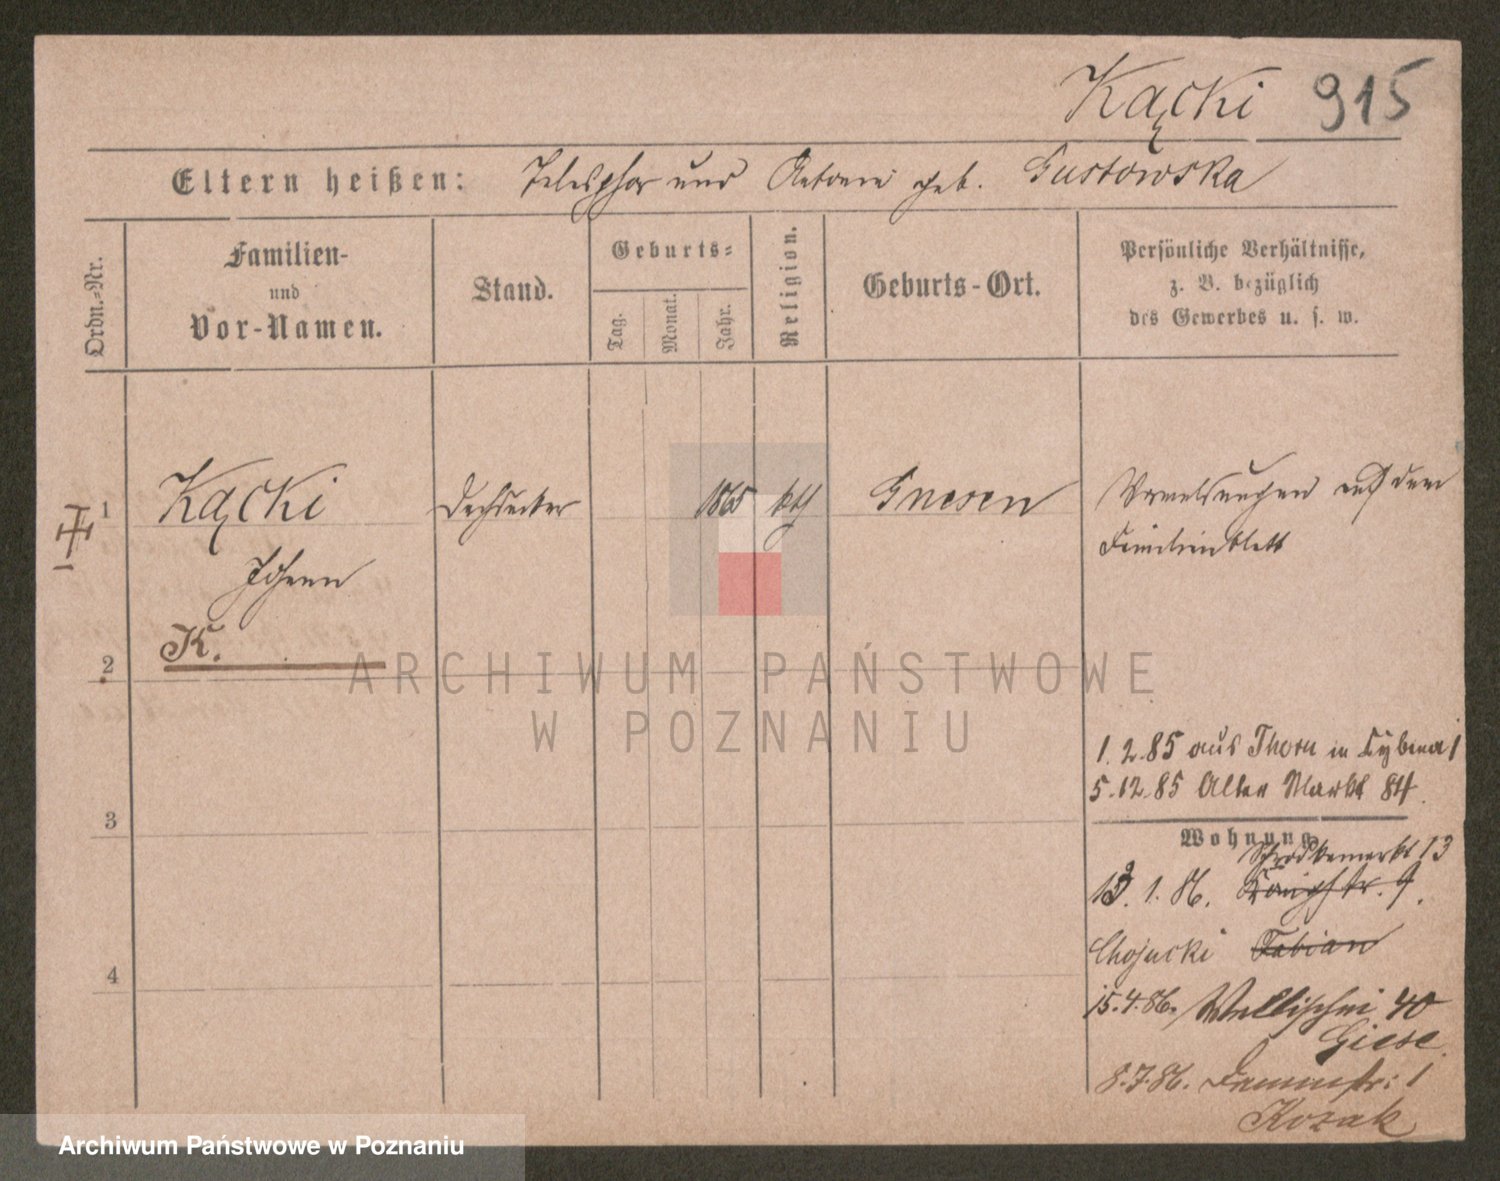 Kącki 915
Eltern heißen: Telesphor und Antonie geb. Gustowska
Ordn.-Nr.
Familien-
und
Vor-Namen.
Stand.
Geburts-
Tag.
Monat.
Jahr.
Religion.
Geburts-Ort.
Persönliche Verhältnisse,
z. B. bezüglich
des Gewerbes u. s. w.
1 Kącki Dachdecker 1865 kth Gnesen auf dem
Familienblatt
Johann
K.
2
1.2.85 aus Thorn in Cybina 1
5.12.85 Alter Markt 84.
3
Wohnung
Schrodkamarkt 13
1. 86. 9.
Chojnicki Fabian
4
15.4.86. Wallischei 40
Giese.
8.7.86. Dammstr: 1
Kozak
ARCHIWUM PAŃSTWOWE
W POZNANIU
Archiwum Państwowe w Poznaniu